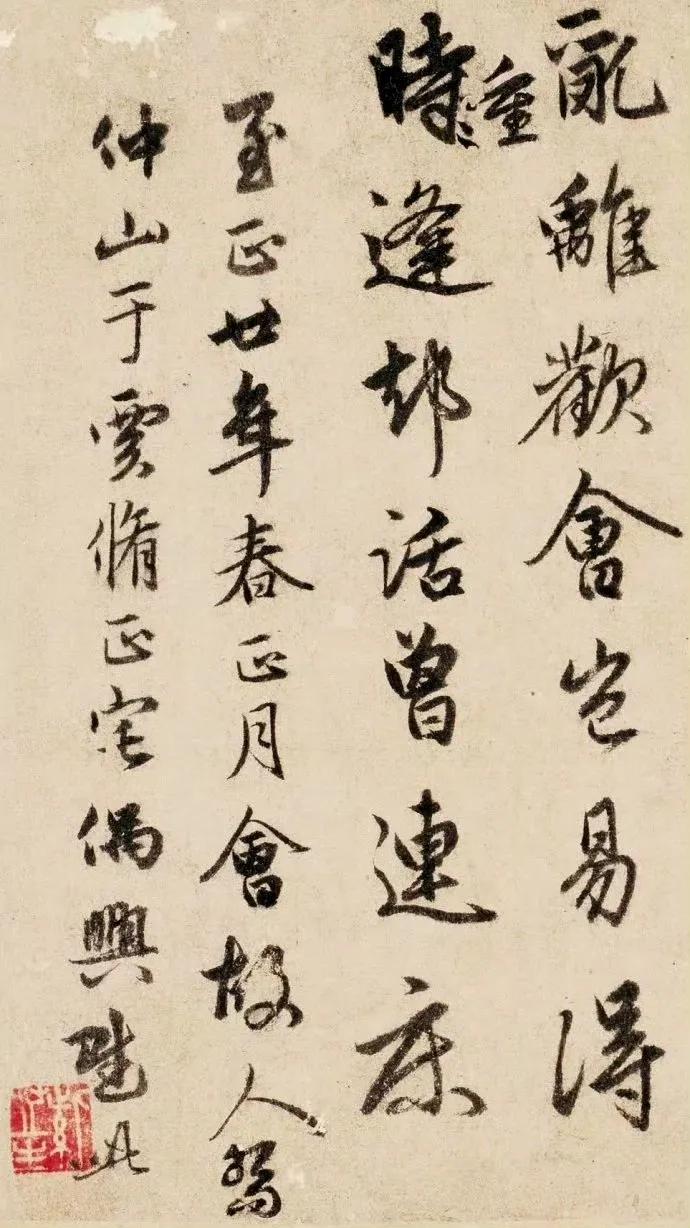 亂離歡會豈易得
時重逢却話曾連床
至正廿年春正月會故人
仲山于脩正宅偶興賦此